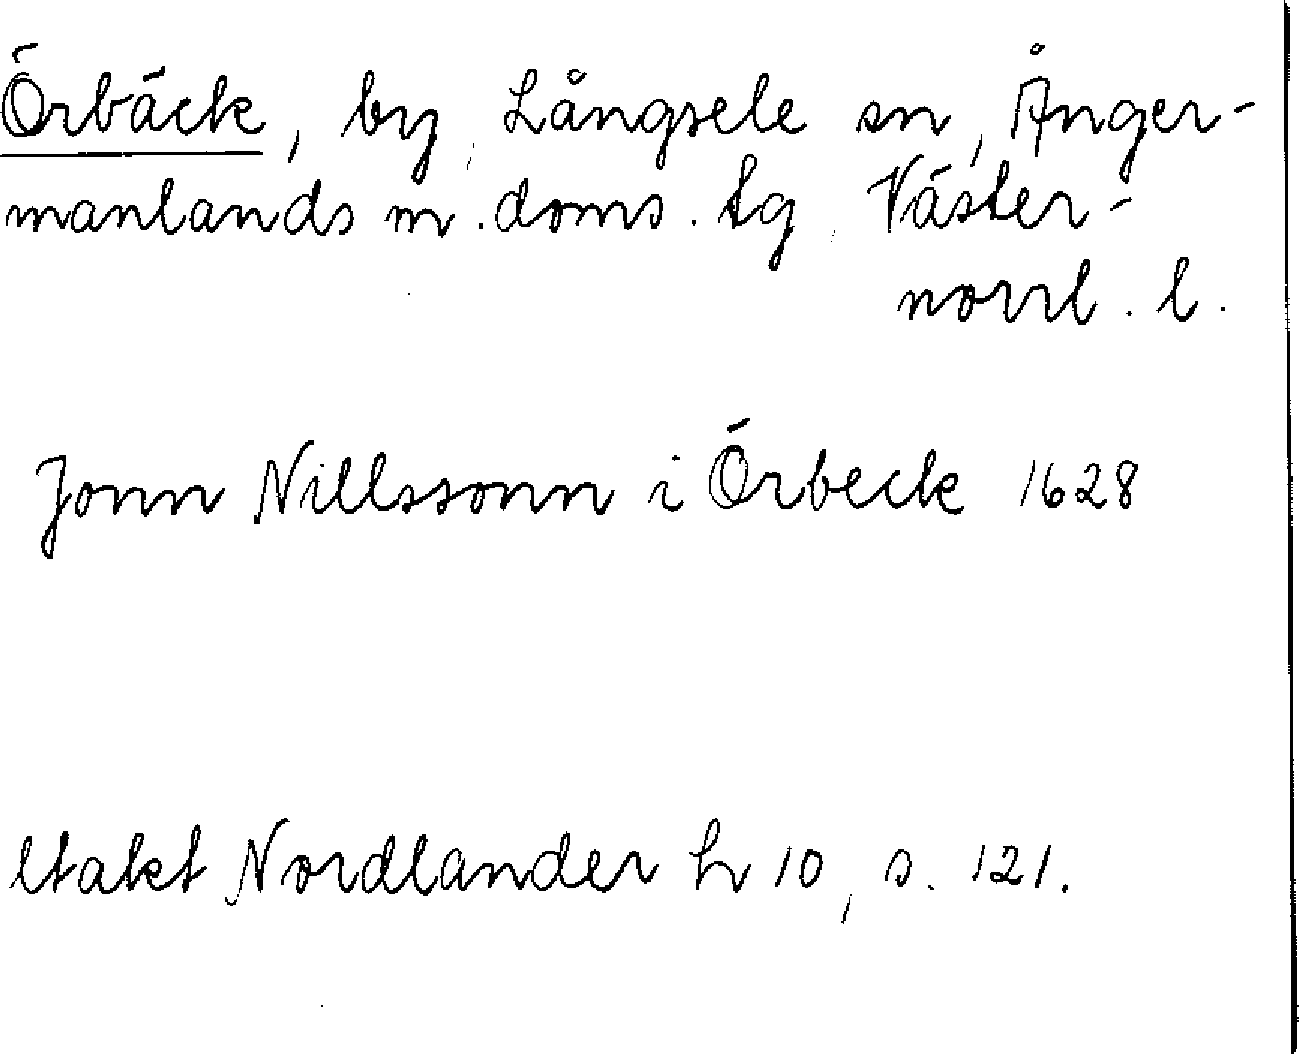 Örbäck, by, Långsele sn, Ånger-
manlands m. doms. tg, Väster-
norrl. l.
Jonn Nillssonn i Örbeck 1628
Nordlander h 10, s. 121.